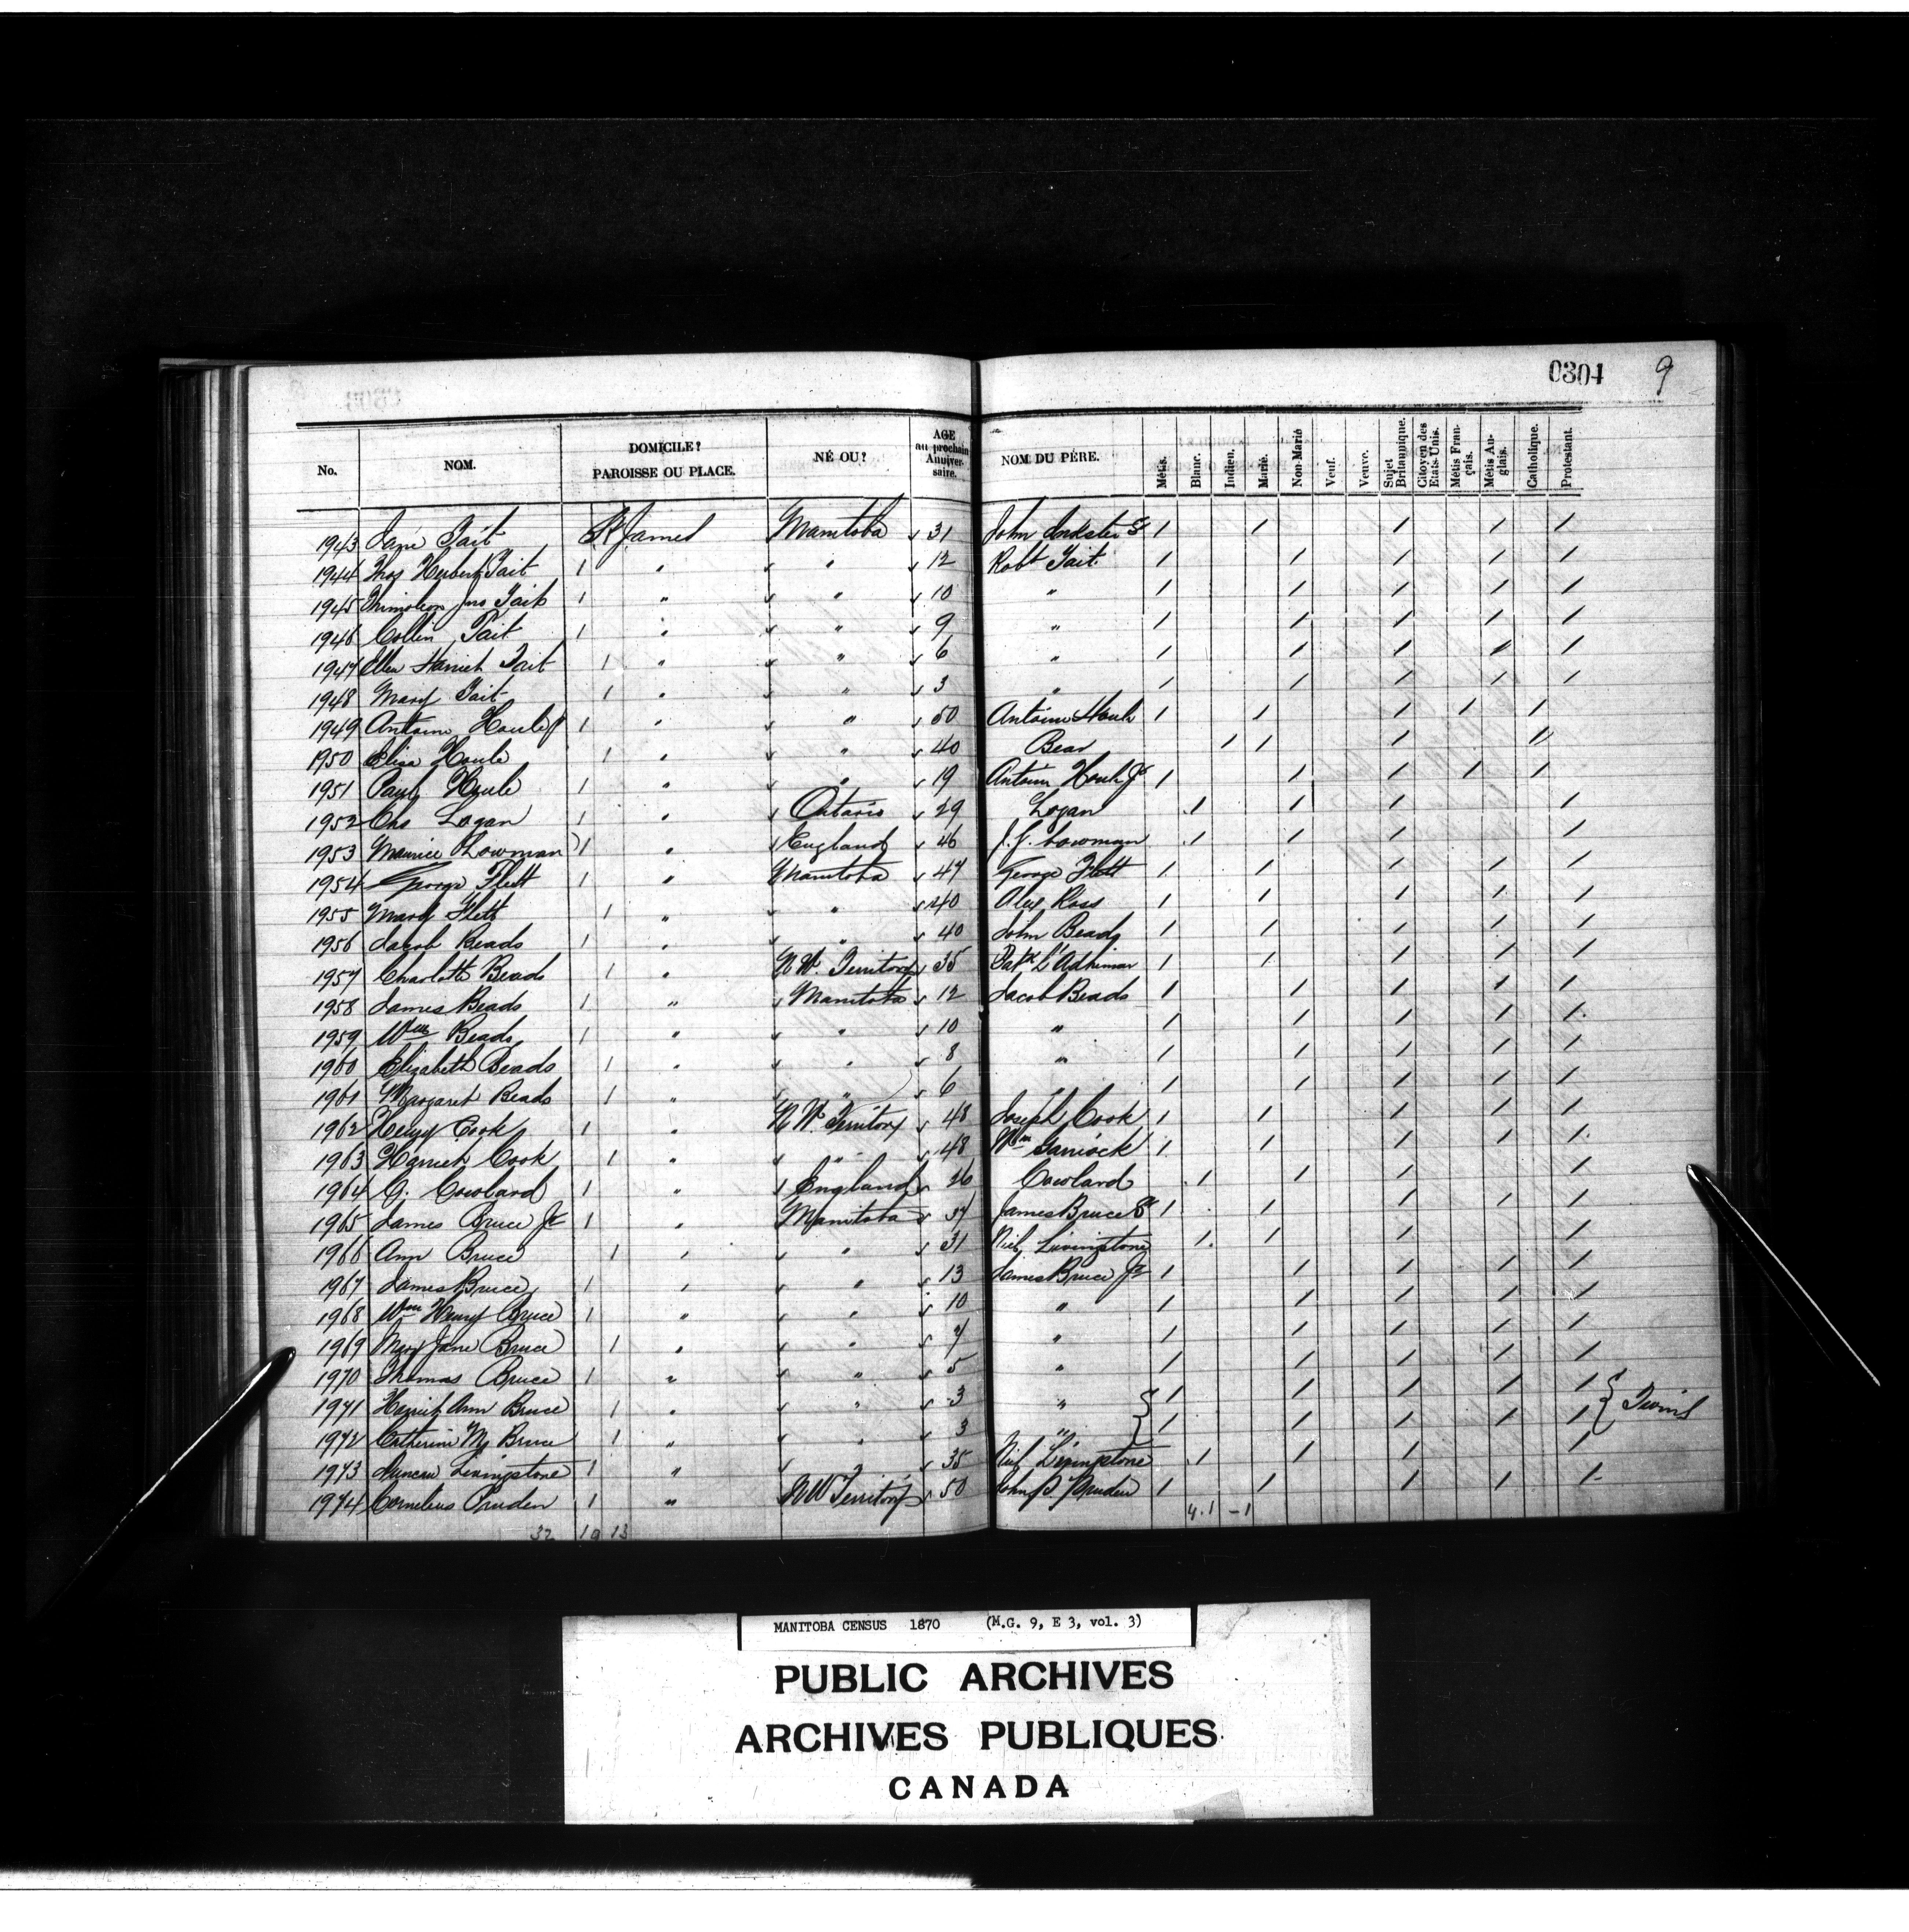 0304 9
No. NOM. DOMICILE? PAROISSE OU PLACE. NÉ OU? AGE au prochain Anniversaire. NOM DU PÉRE. Métis. Blanc. Indien. Marié. Non-Marié Veuf. Veuve. Sujet Britannique. Citoyen des Etats-Unis. Métis Français. Métis Anglais. Catholique. Protestant.
1943 Jane Tait St James Manitoba 31 John Inkster Sr / / / / /
1944 Thos Herbert Tait 1 " " 12 Robt Tait / / / / /
1945 Jno Tait 1 " " 10 " / / / / /
1946 Collin Tait 1 " " 9 " / / / / /
1947 Ellen Harriet Tait 1 " " 6 " / / / / /
1948 Mary Tait 1 " " 3 " / / / / /
1949 Antoine Houle Jr 1 " " 50 Antoine Houle / / / / /
1950 Eliza Houle 1 " " 40 Bear / / / /
1951 Paul Houle 1 " " 19 Antoine Houle Jr / / / / /
1952 Chs Logan 1 " Ontario 29 Logan / / / /
1953 Maurice Lowman 1 " England 46 J. J. Lowman / / / /
1954 George Flett 1 " Manitoba 47 George Flett / / / / /
1955 Mary Flett 1 " " 40 Alex Ross / / / / /
1956 Jacob Beads 1 " " 40 John Beads / / / / /
1957 Charlotte Beads 1 " N W. Territory 35 Patk L'Adhimar / / / / /
1958 James Beads 1 " Manitoba 12 Jacob Beads / / / / /
1959 Wm Beads 1 " " 10 " / / / / /
1960 Elizabeth Beads 1 " " 8 " / / / / /
1961 Margaret Beads 1 " " 6 " / / / / /
1962 Henry Cook 1 " N W. Territory 48 Joseph Cook / / / / /
1963 Harriet Cook 1 " " 48 Wm Garriock / / / / /
1964 G. Cowlard 1 " England 26 Cowlard / / / /
1965 James Bruce Jr 1 " Manitoba 37 James Bruce Sr / / / / /
1966 Ann Bruce 1 " " 31 Neil Livingstone / / / /
1967 James Bruce 1 " " 13 James Bruce Jr / / / / /
1968 Wm Henry Bruce 1 " " 10 " / / / / /
1969 Mary Jane Bruce 1 " " 7 " / / / / /
1970 Thomas Bruce 1 " " 5 " / / / / /
1971 Harriet Ann Bruce 1 " " 3 " / / / / / Twins
1972 Catherine M Bruce 1 " " 3 " / / / / /
1973 Duncan Livingstone 1 " " 35 Neil Livingstone / / / /
1974 Cornelius Pruden 1 " N W Territory 50 John P Pruden / / / / /
32 19 13 4.1 -1
MANITOBA CENSUS 1870 (M.G. 9, E 3, vol. 3)
PUBLIC ARCHIVES
ARCHIVES PUBLIQUES
CANADA